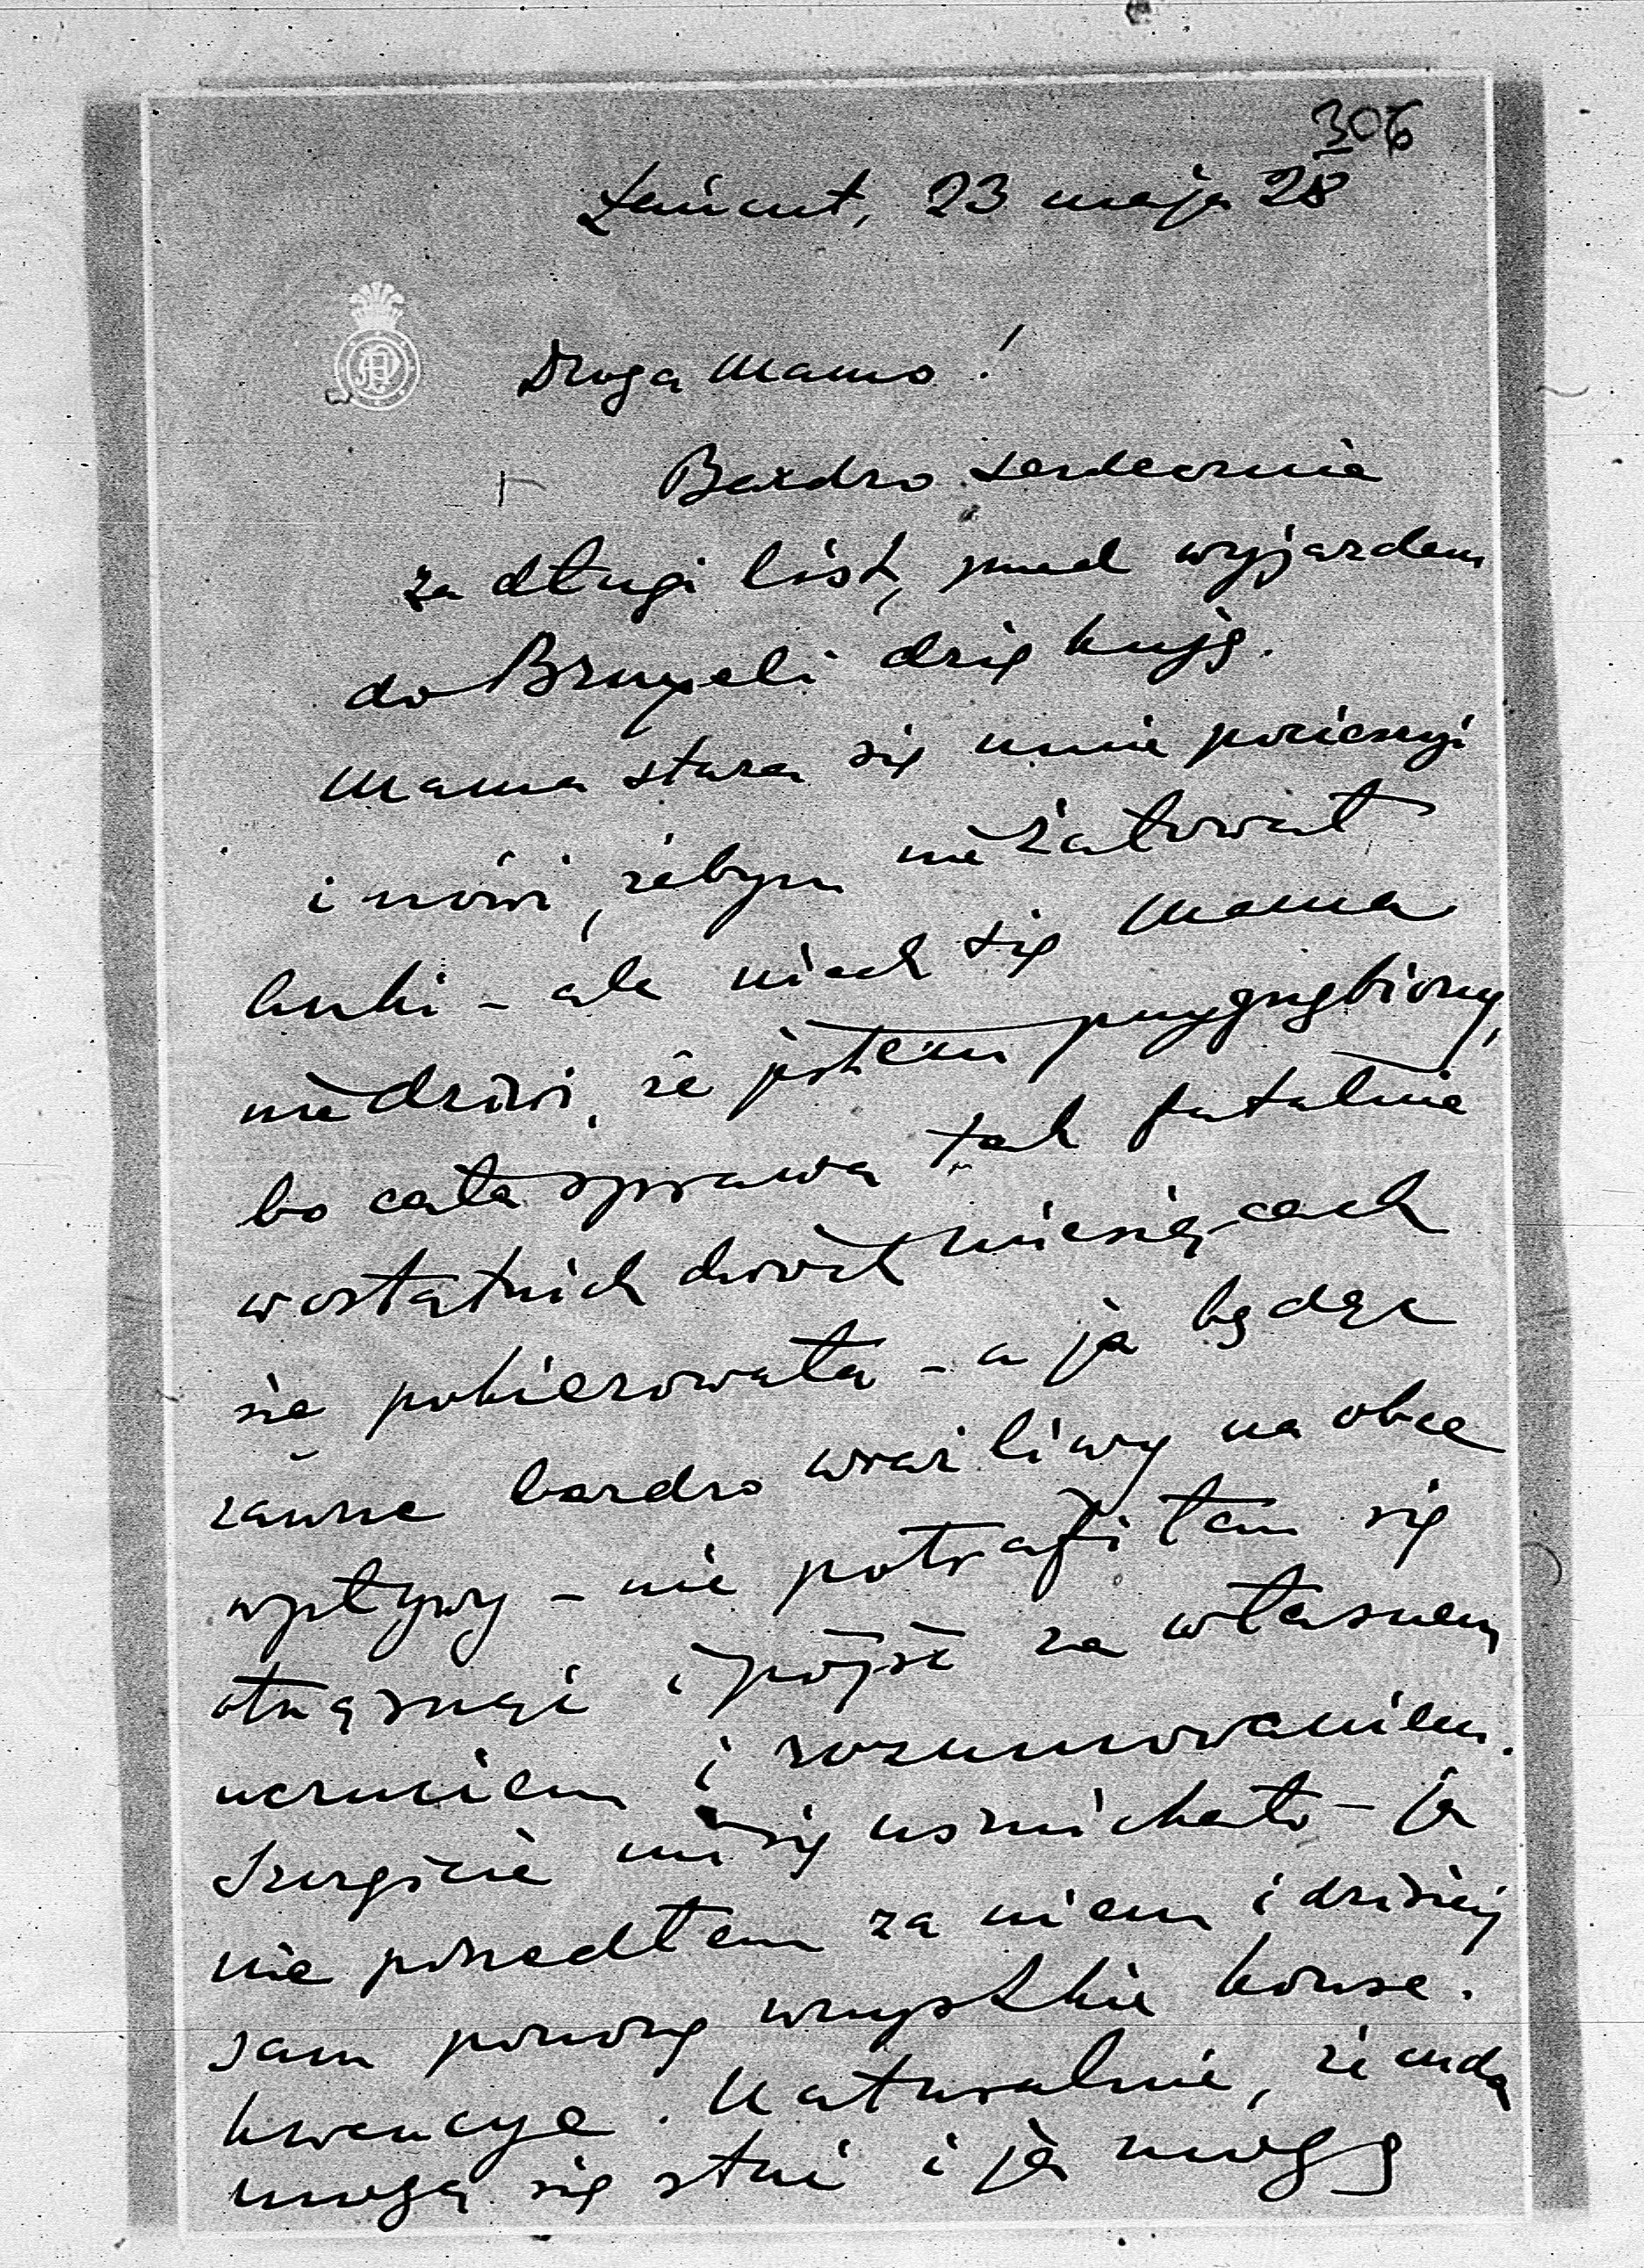 306
Łańcut, 23 maja 28
Droga Mamo!
Bardzo serdecznie
za długi list, przed wyjazdem
do Bruxeli dziękuję.
Mama stara się mnie pocieszyć
i mówi, żebym nie żałował
huki - ale niech się Mama
nie dziwi, że jestem przygnębiony,
bo cała sprawa tak fatalnie
w ostatnich dwóch miesiącach
się pokierowała - a ja będąc
zawsze bardzo wrażliwy na obce
wpływy - nie potrafiłam się
otrząsnąć i pójść za własnem
uczuciem i rozumowaniem.
Szczęście mi się uśmiechało - ja
nie poszedłem za niem i dzisiaj
sam ponoszę wszystkie konse.
kwencye. Naturalnie, że cuda
mogą się stać i ja mogę